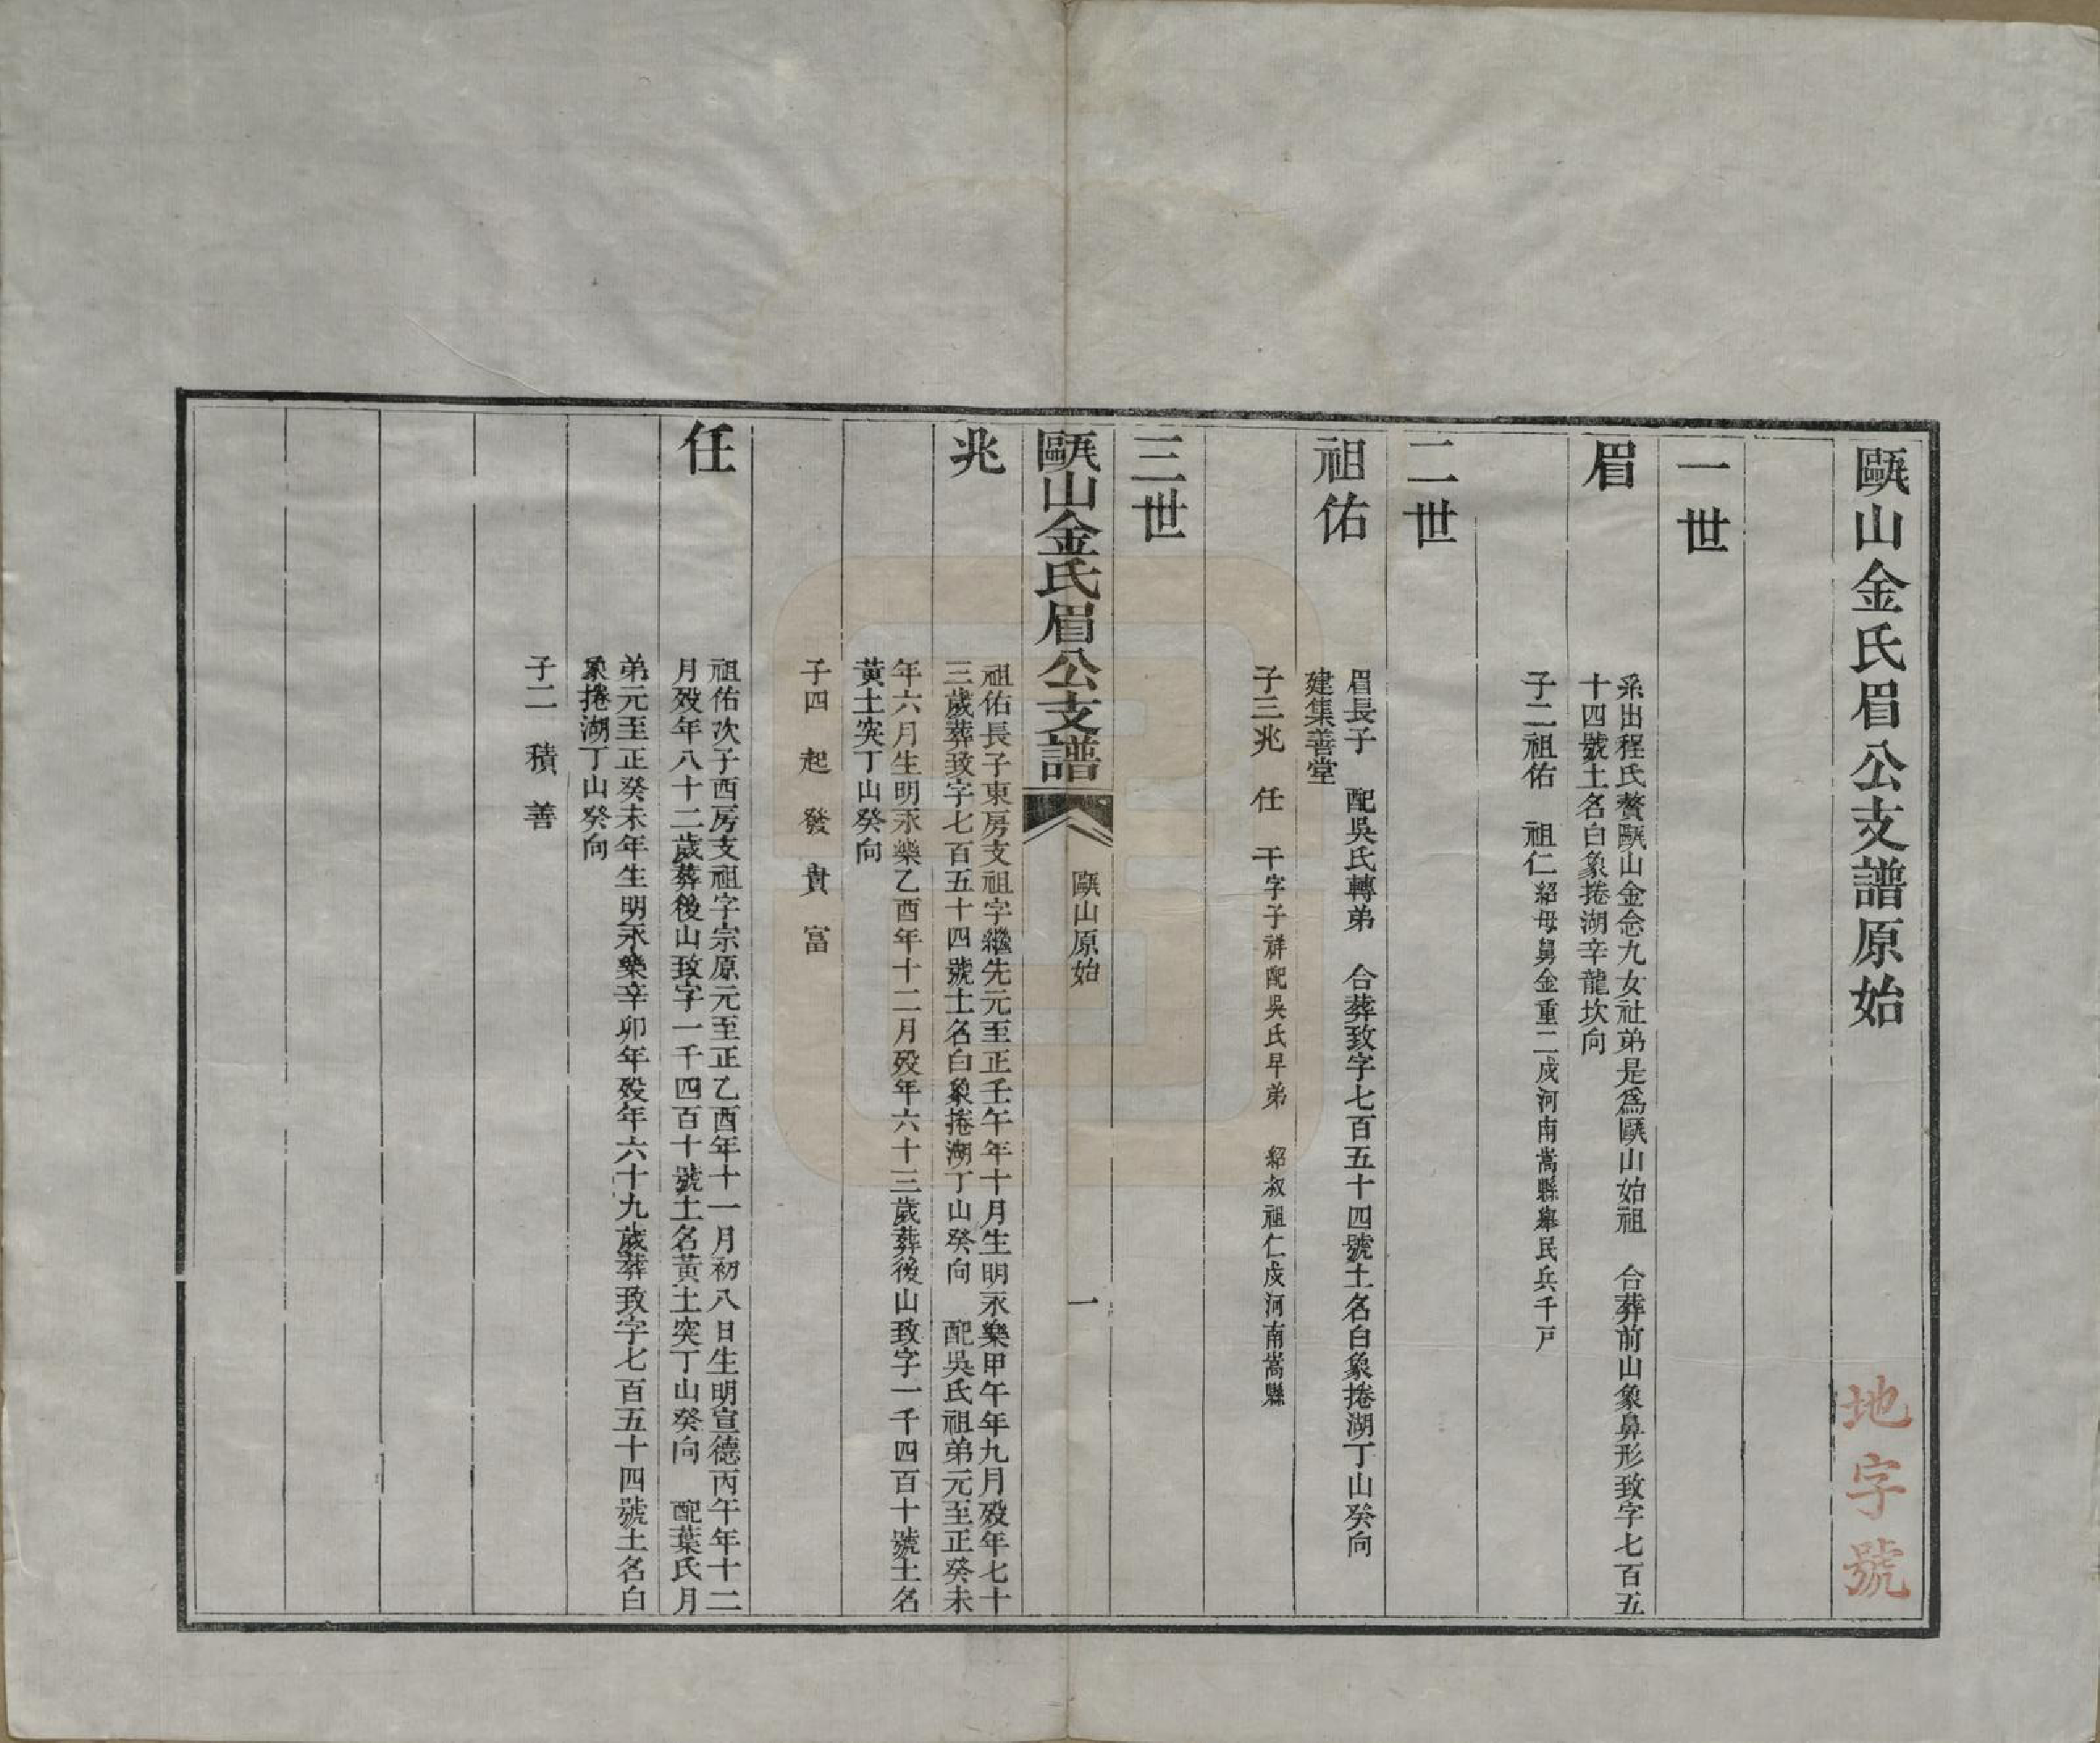 甌山金氏眉公支譜原始
地字號
一世
眉
系出程氏贅甌山金念九女社弟是爲甌山始祖　合葬前山象鼻形致字七百五
十四號土名白象捲湖辛龍坎向
子二祖佑　祖仁紹母舅金重二戍河南嵩縣舉民兵千戸
二世
祖佑
眉長子　配吳氏轉弟　合葬致字七百五十四號土名白象捲湖丁山癸向
建集善堂
子三兆　任　干字子祥配吳氏早弟　紹叔祖仁戍河南嵩縣
三世
甌山金氏眉公支譜　甌山原始　一
兆
祖佑長子東房支祖字繼先元至正壬午年十月生明永樂甲午年九月歿年七十
三歲葬致字七百五十四號土名白象捲湖丁山癸向　配吳氏祖弟元至正癸未
年六月生明永樂乙酉年十二月歿年六十三歲葬後山致字一千四百十號土名
黃土突丁山癸向
子四　起　發　貴　富
任
祖佑次子西房支祖字宗原元至正乙酉年十一月初八日生明宣德丙午年十二
月歿年八十二歲葬後山致字一千四百十號土名黃土突丁山癸向　配葉氏月
弟元至正癸未年生明永樂辛卯年歿年六十九歲葬致字七百五十四號土名白
象捲湖丁山癸向
子二　積　善